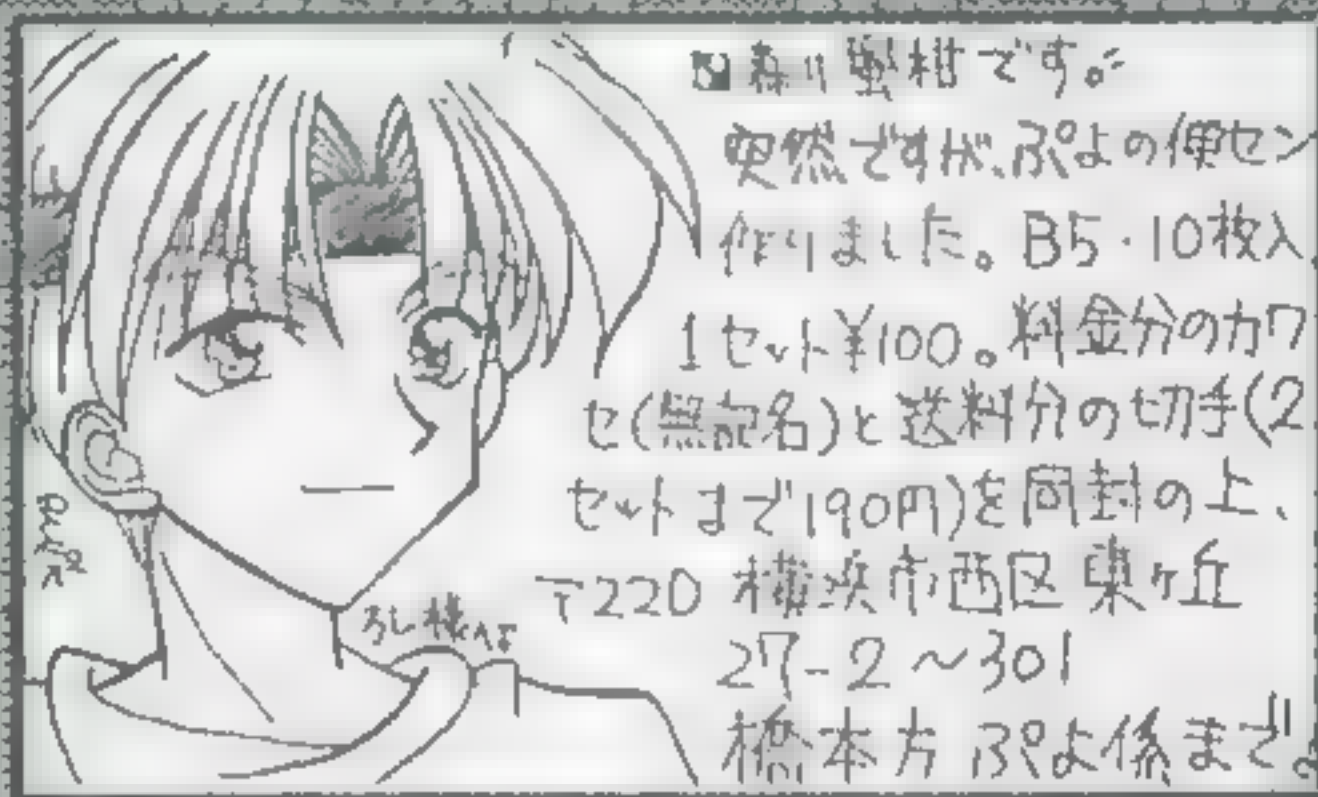 森川蜜柑です。
突然ですが、ぷよの便セン
作りました。B5・10枚入。
1セット¥100。料金分のカワ
セ(無記名)と送料分の切手(2
セットまで190円)を同封の上、
〒220 横浜市西区東ヶ丘
27-2~301
橋本方 ぷよ係まで。
ろし様へ